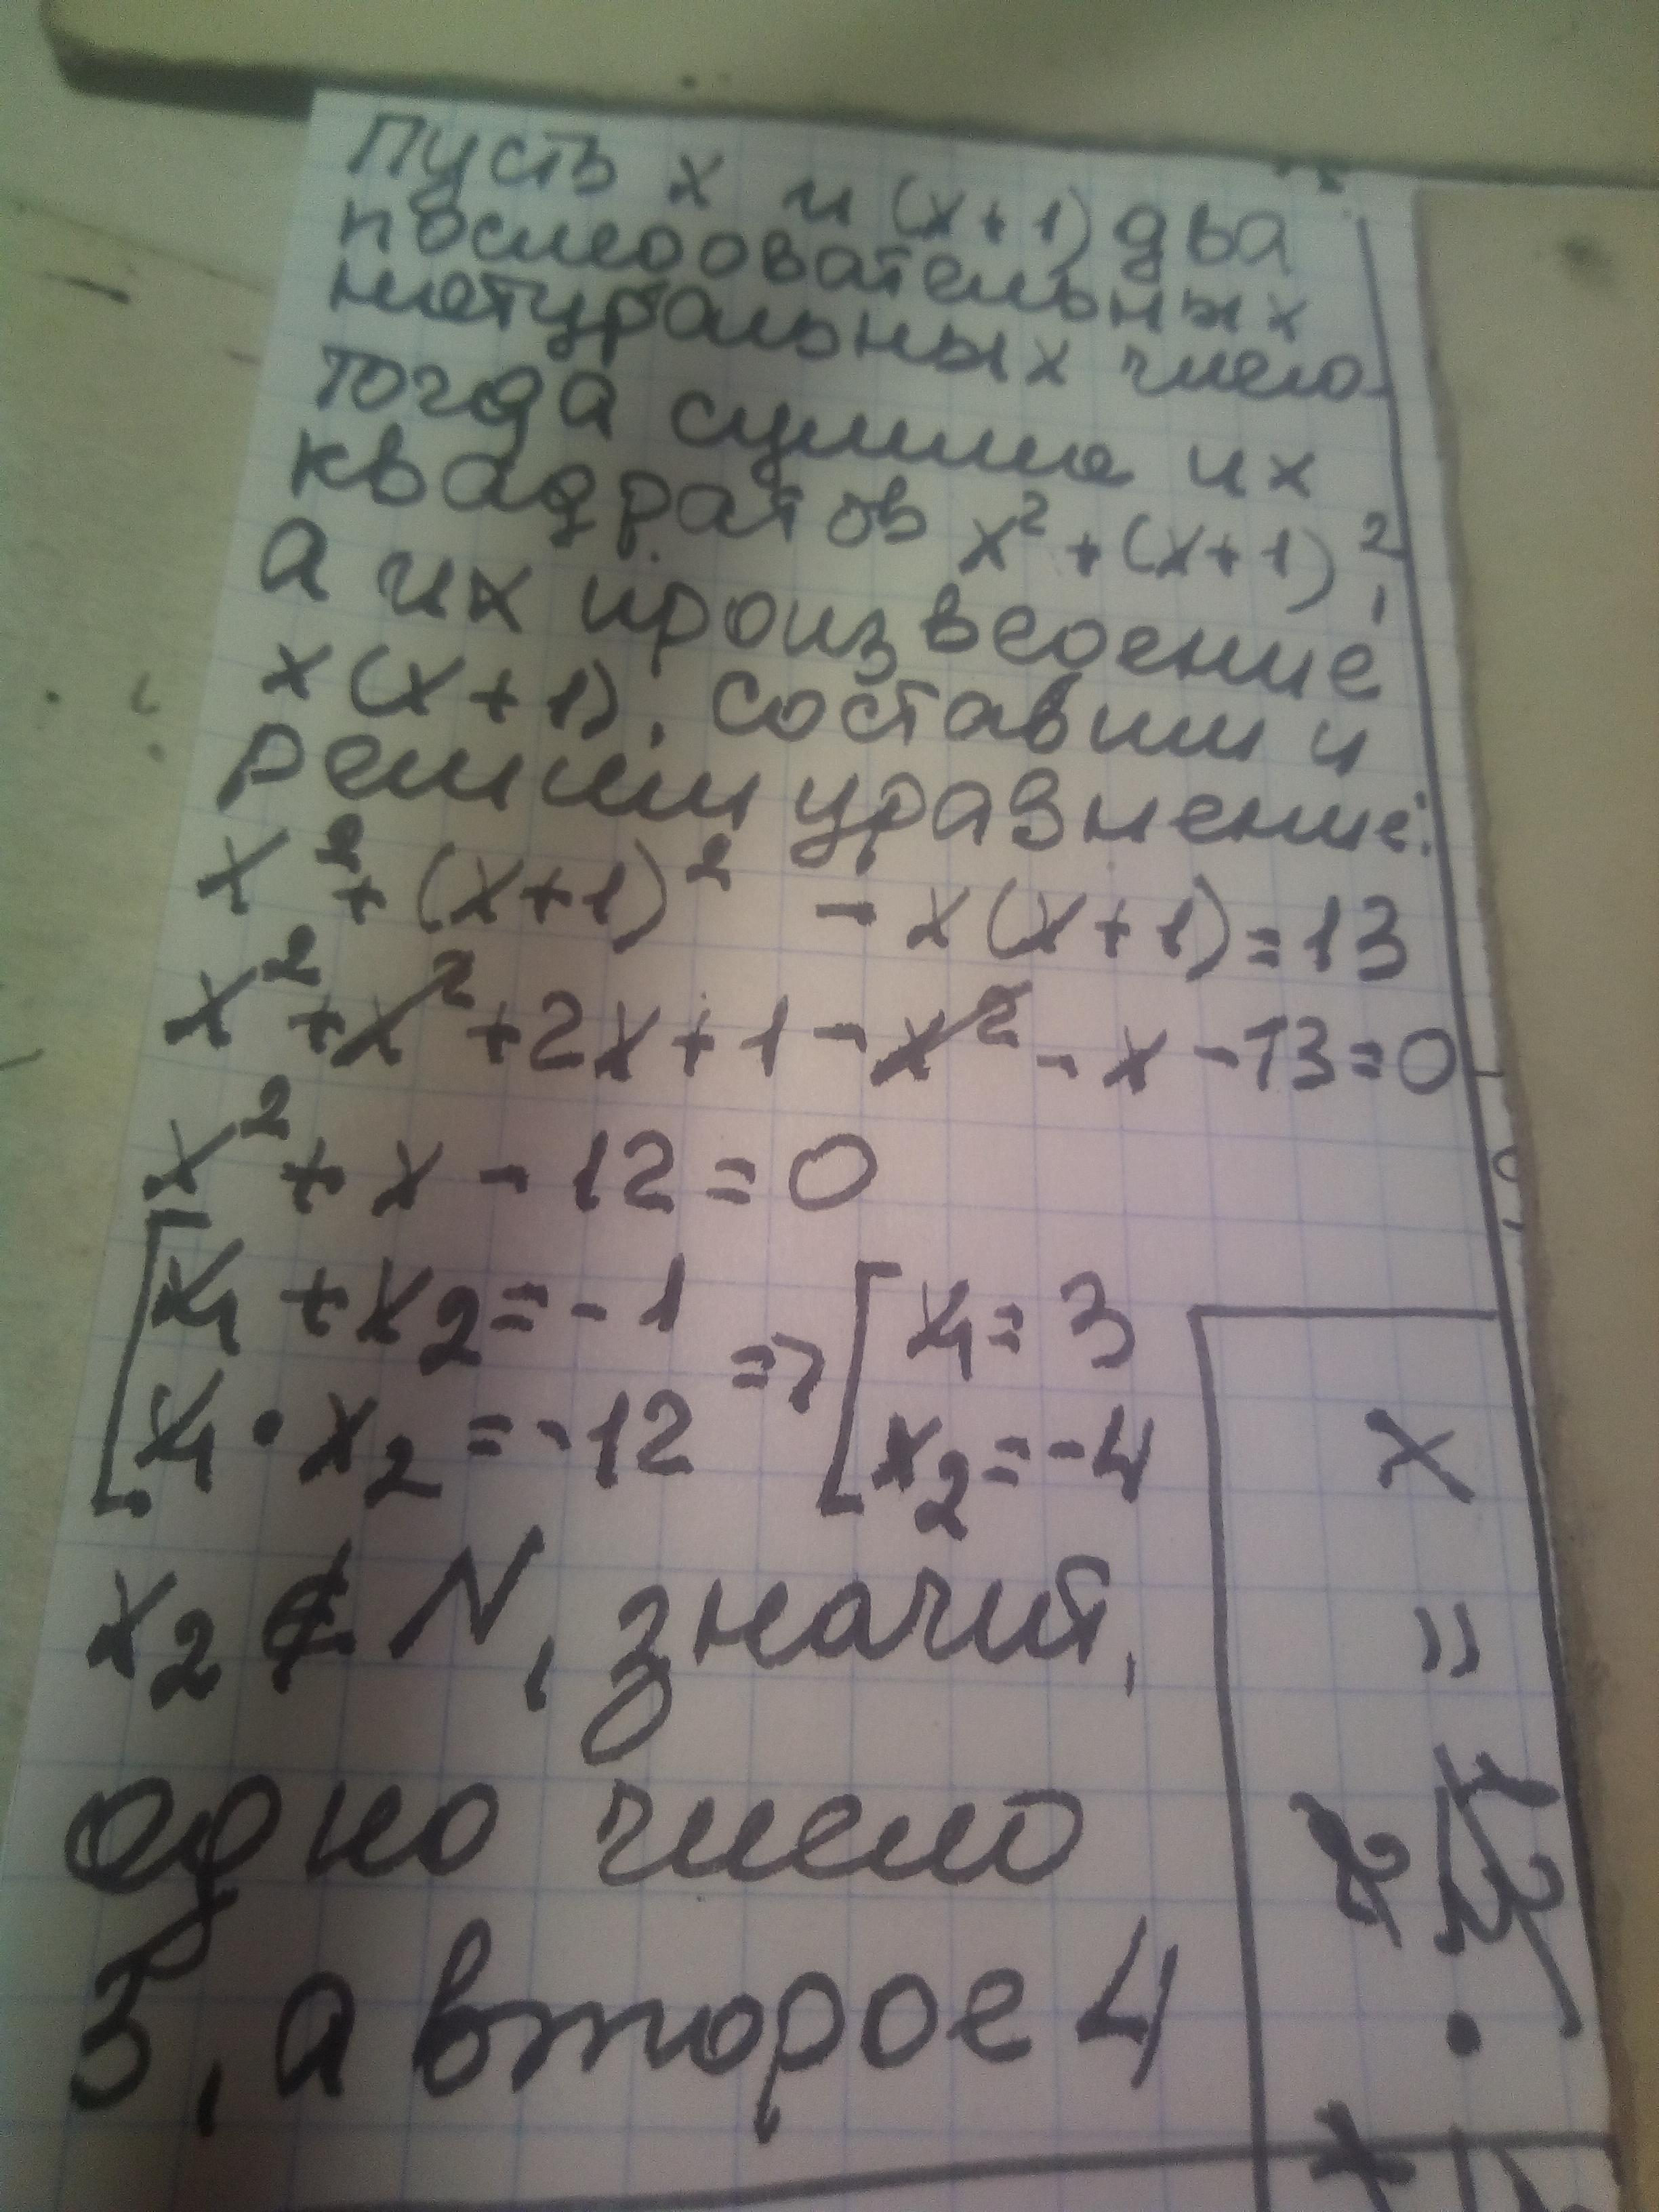 Пусть x и (x+1) два
последовательных
натуральных число
тогда сумма их
квадратов x² + (x+1)²,
а их произведение
x(x+1). составим и
решим уравнение:
x² + (x+1)² - x(x+1) = 13
x² + x² + 2x + 1 - x² - x - 13 = 0
x² + x - 12 = 0
[ x₁ + x₂ = -1
x₁ • x₂ = -12 => [ x₁ = 3
x₂ = -4
x₂ ∉ N, значит,
одно число
3, а второе 4
x
=